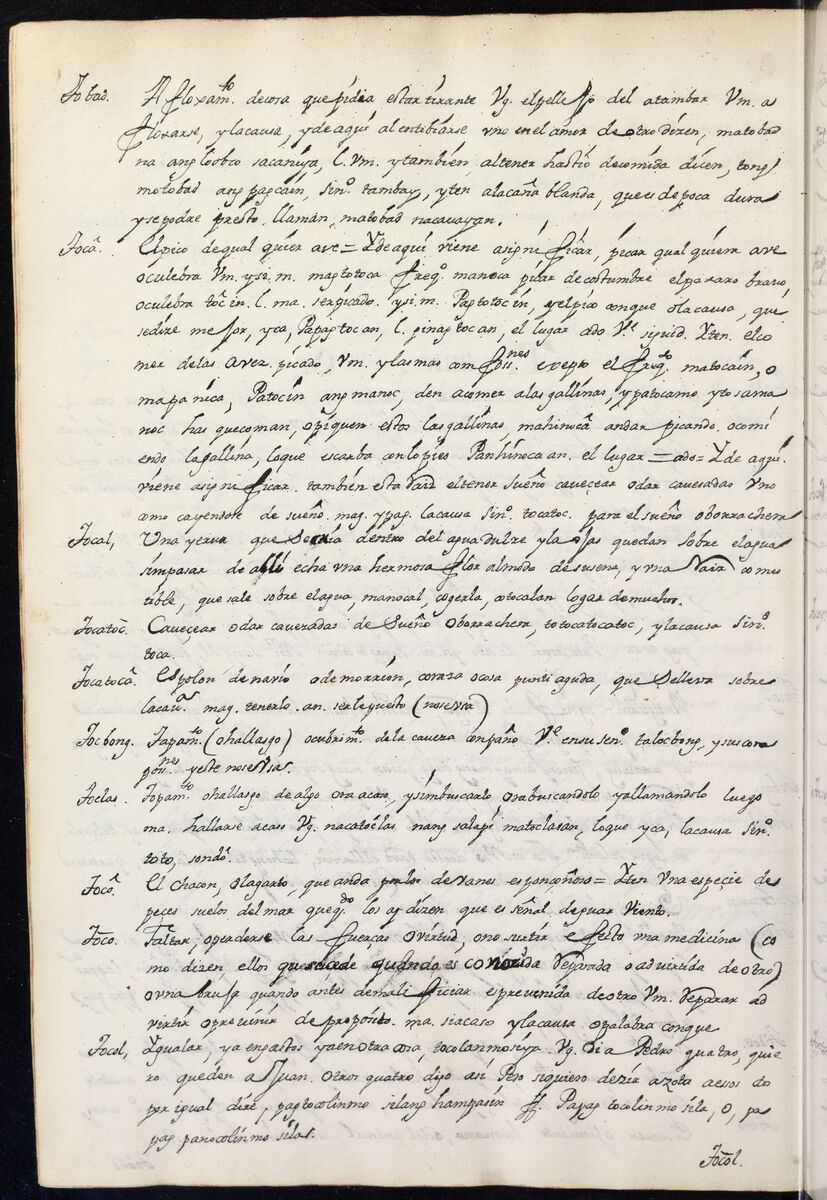 Tobad. Afloxam.to decosa que pidia estar tirante Vg. elpellejo del atambar Vm. a
floxarse, ylacausa, ydeaqui alentibiarse vno enel amor de otro dizen, matobad
na ang loobco sacaniya, l. Vm. ytambien, altener hastio decomida dicen, tong
motobad ang pagcaen, sin.o tambay, yten alacaña blanda, quees depoca dura
ysepodre presto. llaman, matobad nacauayan.
Tocâ. Elpico dequal quier ave = Ydeaqui viene asignificar, picar qual quiera ave
oculebra Vm. ysi. m. magtotoca freq.o manoca picar decostumbre elpaxaro bravo,
oculebra tocin. l. ma. serpicado. ysi. m. Pagtotocin, yelpico conque olacausa, que
sedize mejor, yca, Papagtocan, l. pinagtocan, el lugar ado V.e sipuid. Yten. elco
mer delas avez. picado, Vm. ylasmas comp.ones exepto el freq.do matocain, o
mapanica, Patocin ang manoc, den acomer alas gallinas, ypatocamo yto sama
noc has quecoman, opiquen estos las gallinas, mahinocâ andar picando. ocomi
endo lagallina, loque escarba conlospies Panhinocaan. el lugar = ado = Ydeaqui.
viene asignificar. tambien esta raiz eltener sueño caveçear odar cavesadas vno
como cayendose de sueño. mag. ypag. lacausa sin.o tocatoc. para el sueño oborrachera
Tocal, Una yerva que secria dentro del agua dulze ylas ojas quedan sobre elagua
simpasar de alli echa vna hermosa flor almodo de susena, y vna raiz comes
tible, que sale sobre elagua, manocal, cogerla, cotocalan logar de muchos.
Tocatoc. Caveçear odar cavezadas de Sueño oborrachera, totocatocatoc, ylacausa sin.o
toca.
Tocatocâ. Espolon de navio odemorrion, coraza ocosa punti aguda, que selleva sobre
lacav.a mag. tenerlo. an. serlepuesto (nosevsa)
Tocbong. Tapam.to (ohallasgo) ocubrim.to dela caveza conpaño V.e ensu sen.o talocbong, ysus com
pon.nes yeste nosevsa.
Toclas. Topam.to ohallasgo de algo oxa acaso, ysimbuscarlo oxa buscandolo yallamandolo luego
ma. hallarse acaso Vg. nacatoclas nang salapi, matoclasan, loque yca, lacausa sin.o
toto, sondo.
Tocô. El chacon, olagarto, que anda por los devanes esponçoñoso = Yten Una espeçie de
peces suelos del mar que q.do los ay dizen que es señal depuar viento.
Toco. Faltar, operderse las fuerças ovirtud, ono surtir efecto vna medicina (co
mo dizen, ellos que sucede quando es conosida reparada o advirtida de otro)
ovna bruja quando antes demalificiar esprevenida deotro Vm. reparar ad
virtir oprevinir de proposito. ma. siacaso ylacausa opalabra conque
Tocol, Ygualar, ya engastos yaen otra cosa, tocolanmosiya. Vg. Di a Pedro quatro, quie
ro queden a Juan. otros quatro digo asi Pero siquiero dezir azota aesos do
por igual dire, pagtocolinmo silang hampasin ff. Papag tocolinmo sila, o, pa
pag panocolinmo silas.
Tocol.